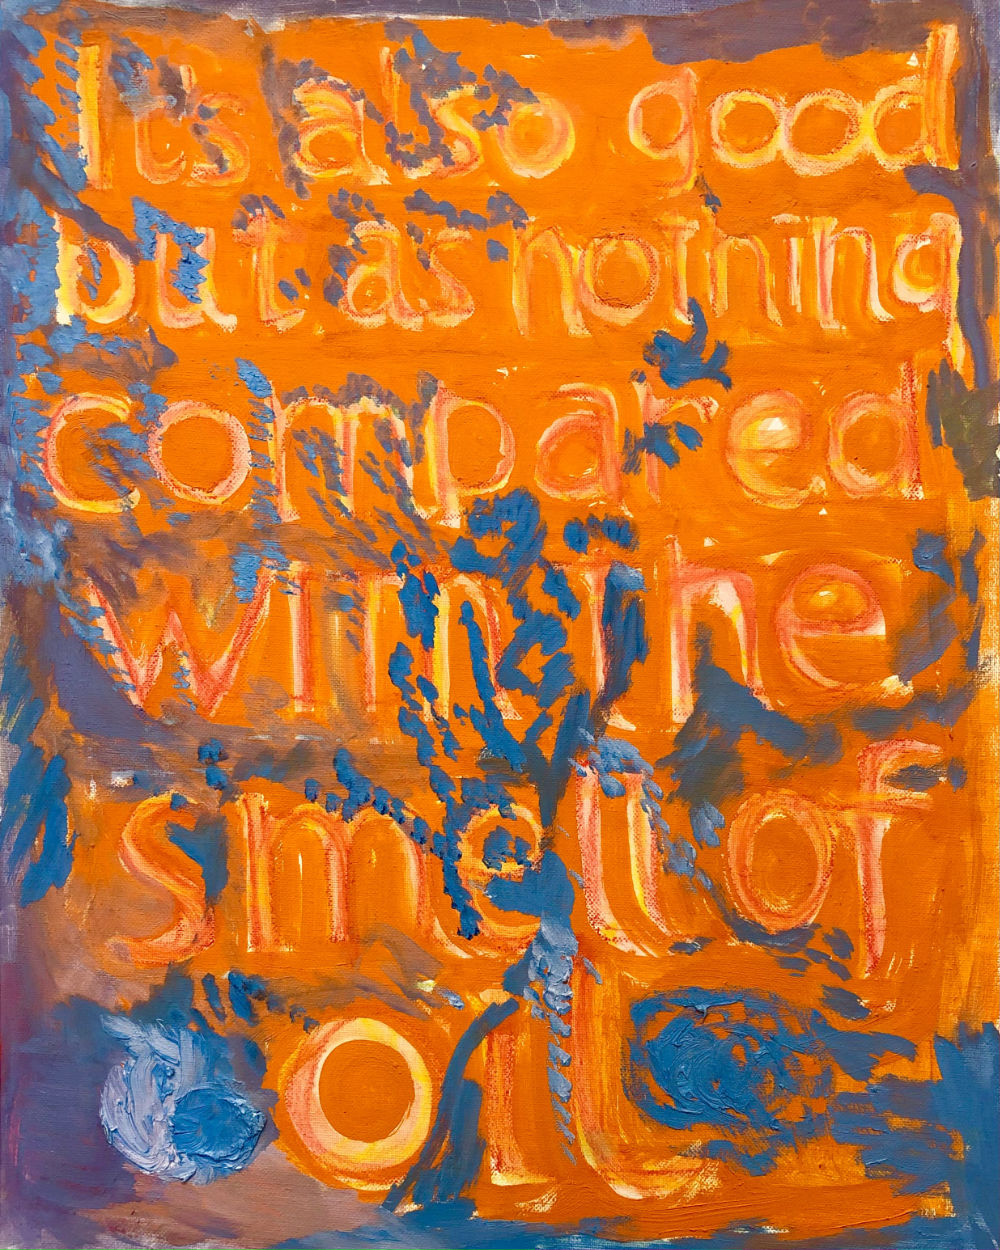 It's also good
but as nothing
compared
with the
smell of
oil